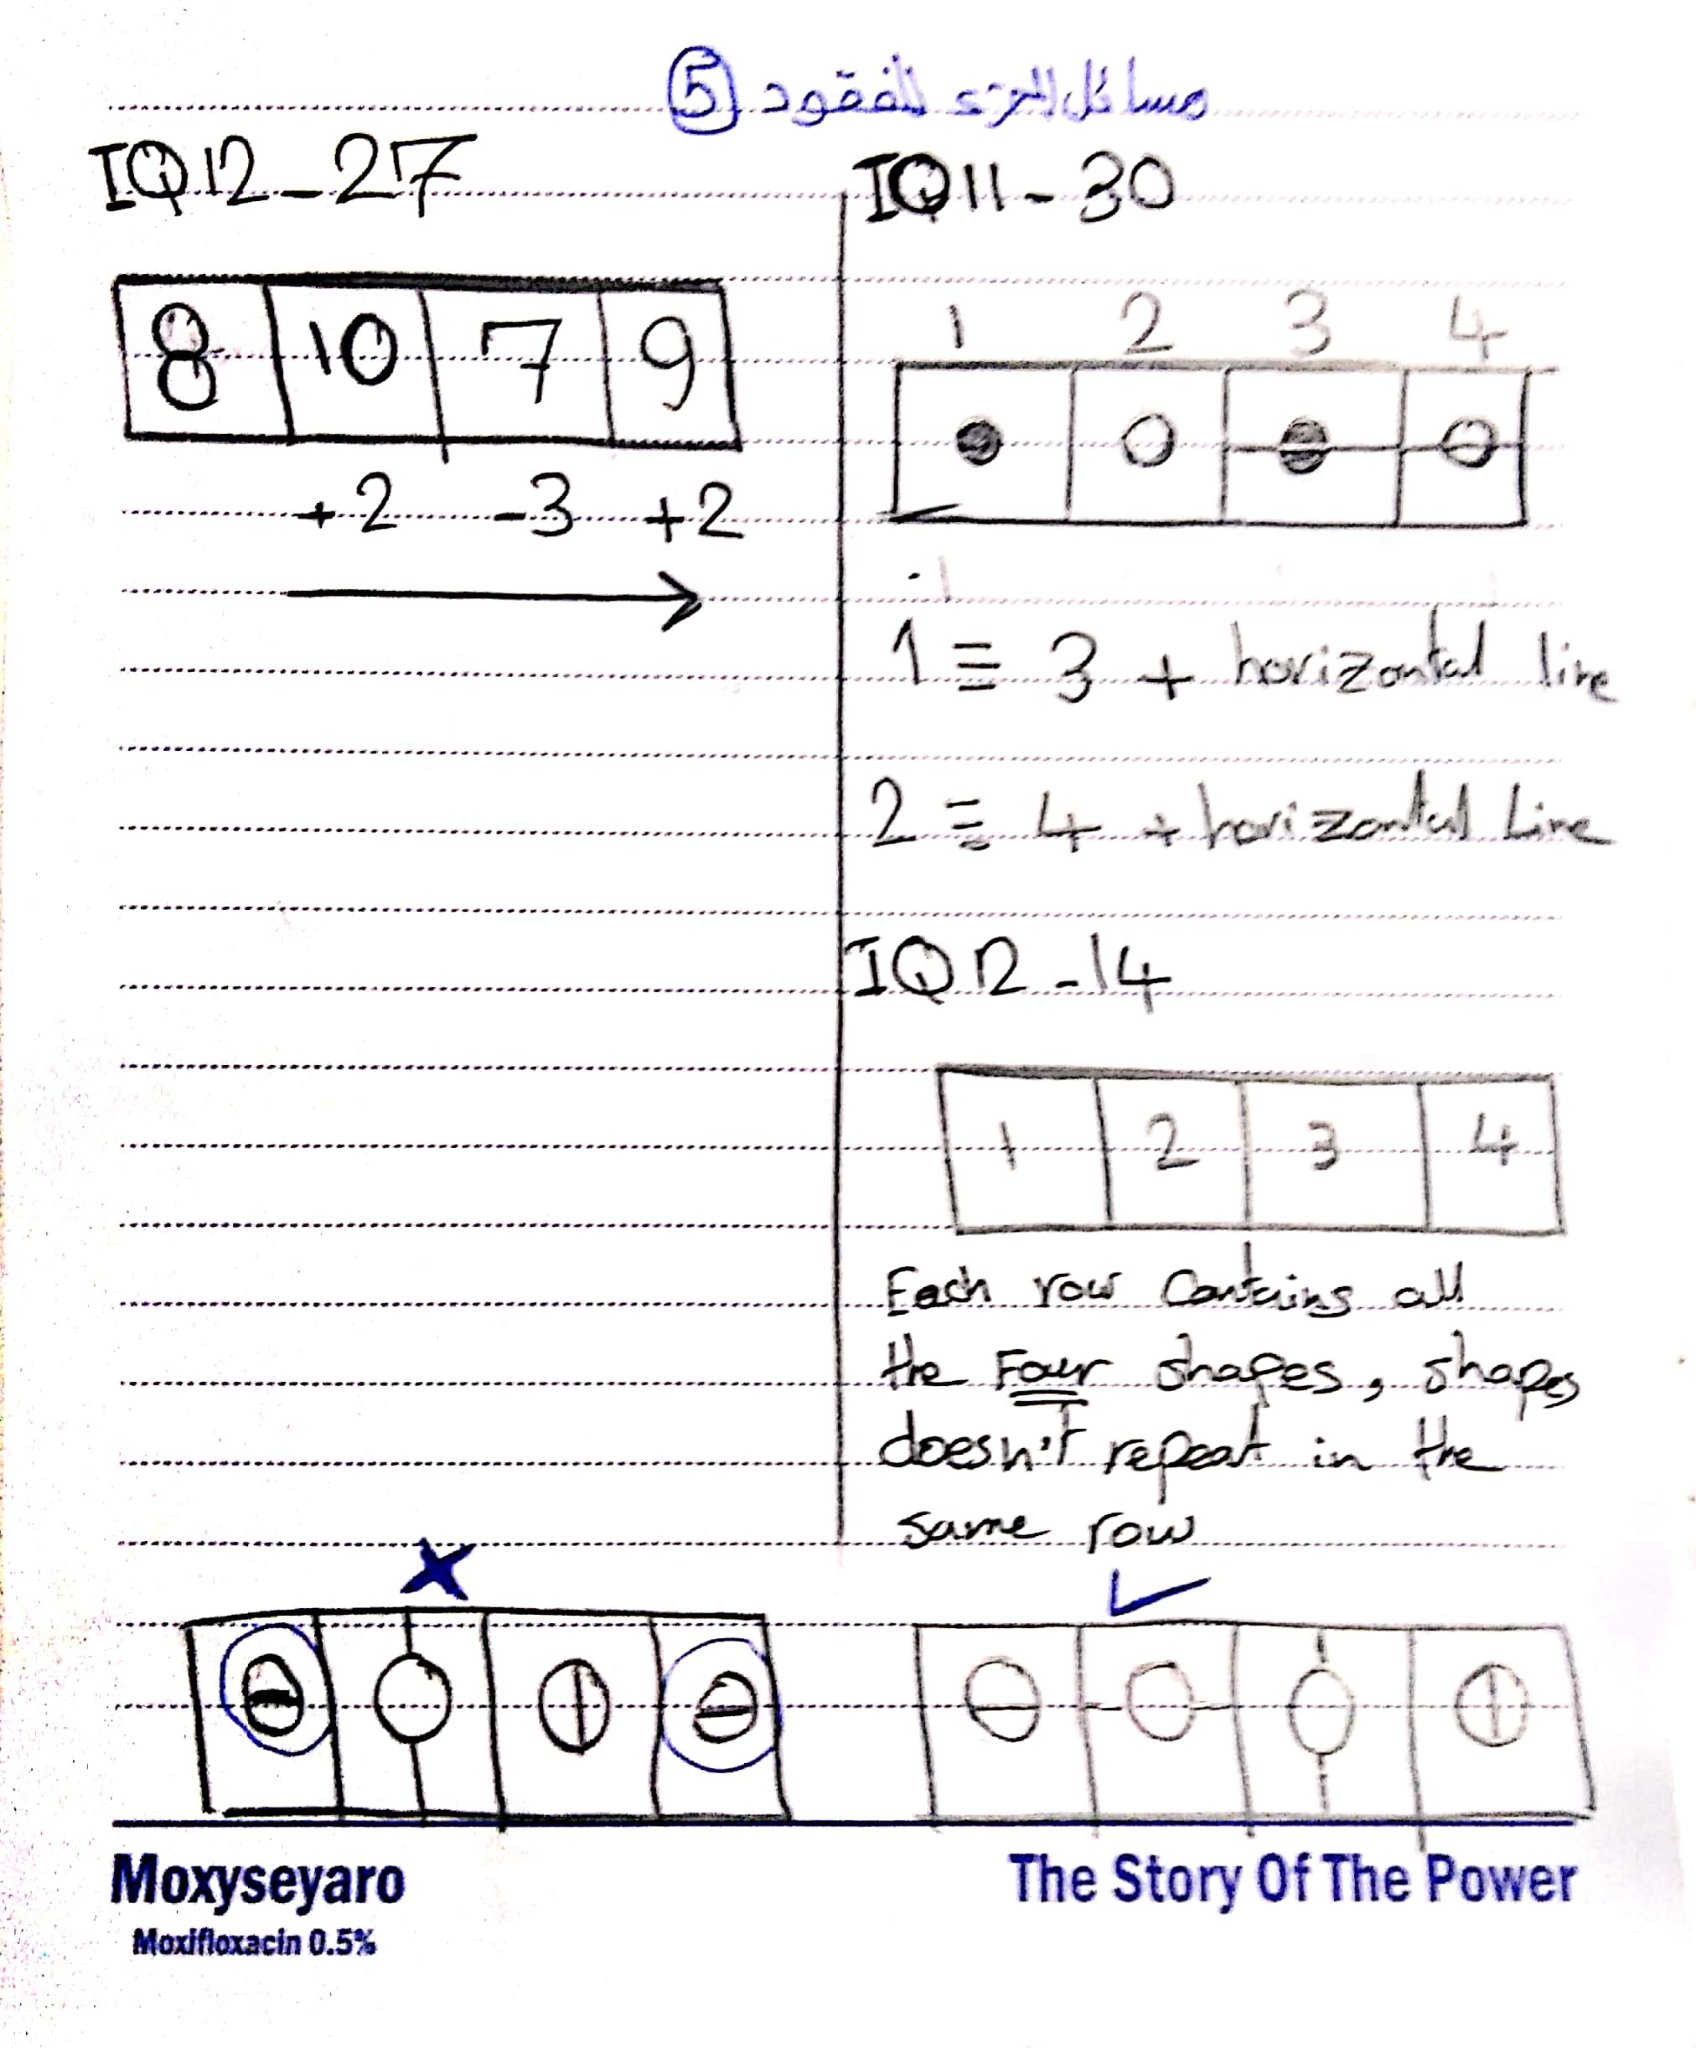 مسائل الجزء المفقود 5
IQ12-27
8 10 7 9
+2 -3 +2
IQ11-30
1 2 3 4
1 ≡ 3 + horizontal line
2 ≡ 4 + horizontal Line
IQ12-14
1 2 3 4
Each row Contains all
the Four shapes, shapes
doesn't repeat in the
same row
Moxyseyaro
Moxifloxacin 0.5%
The Story Of The Power